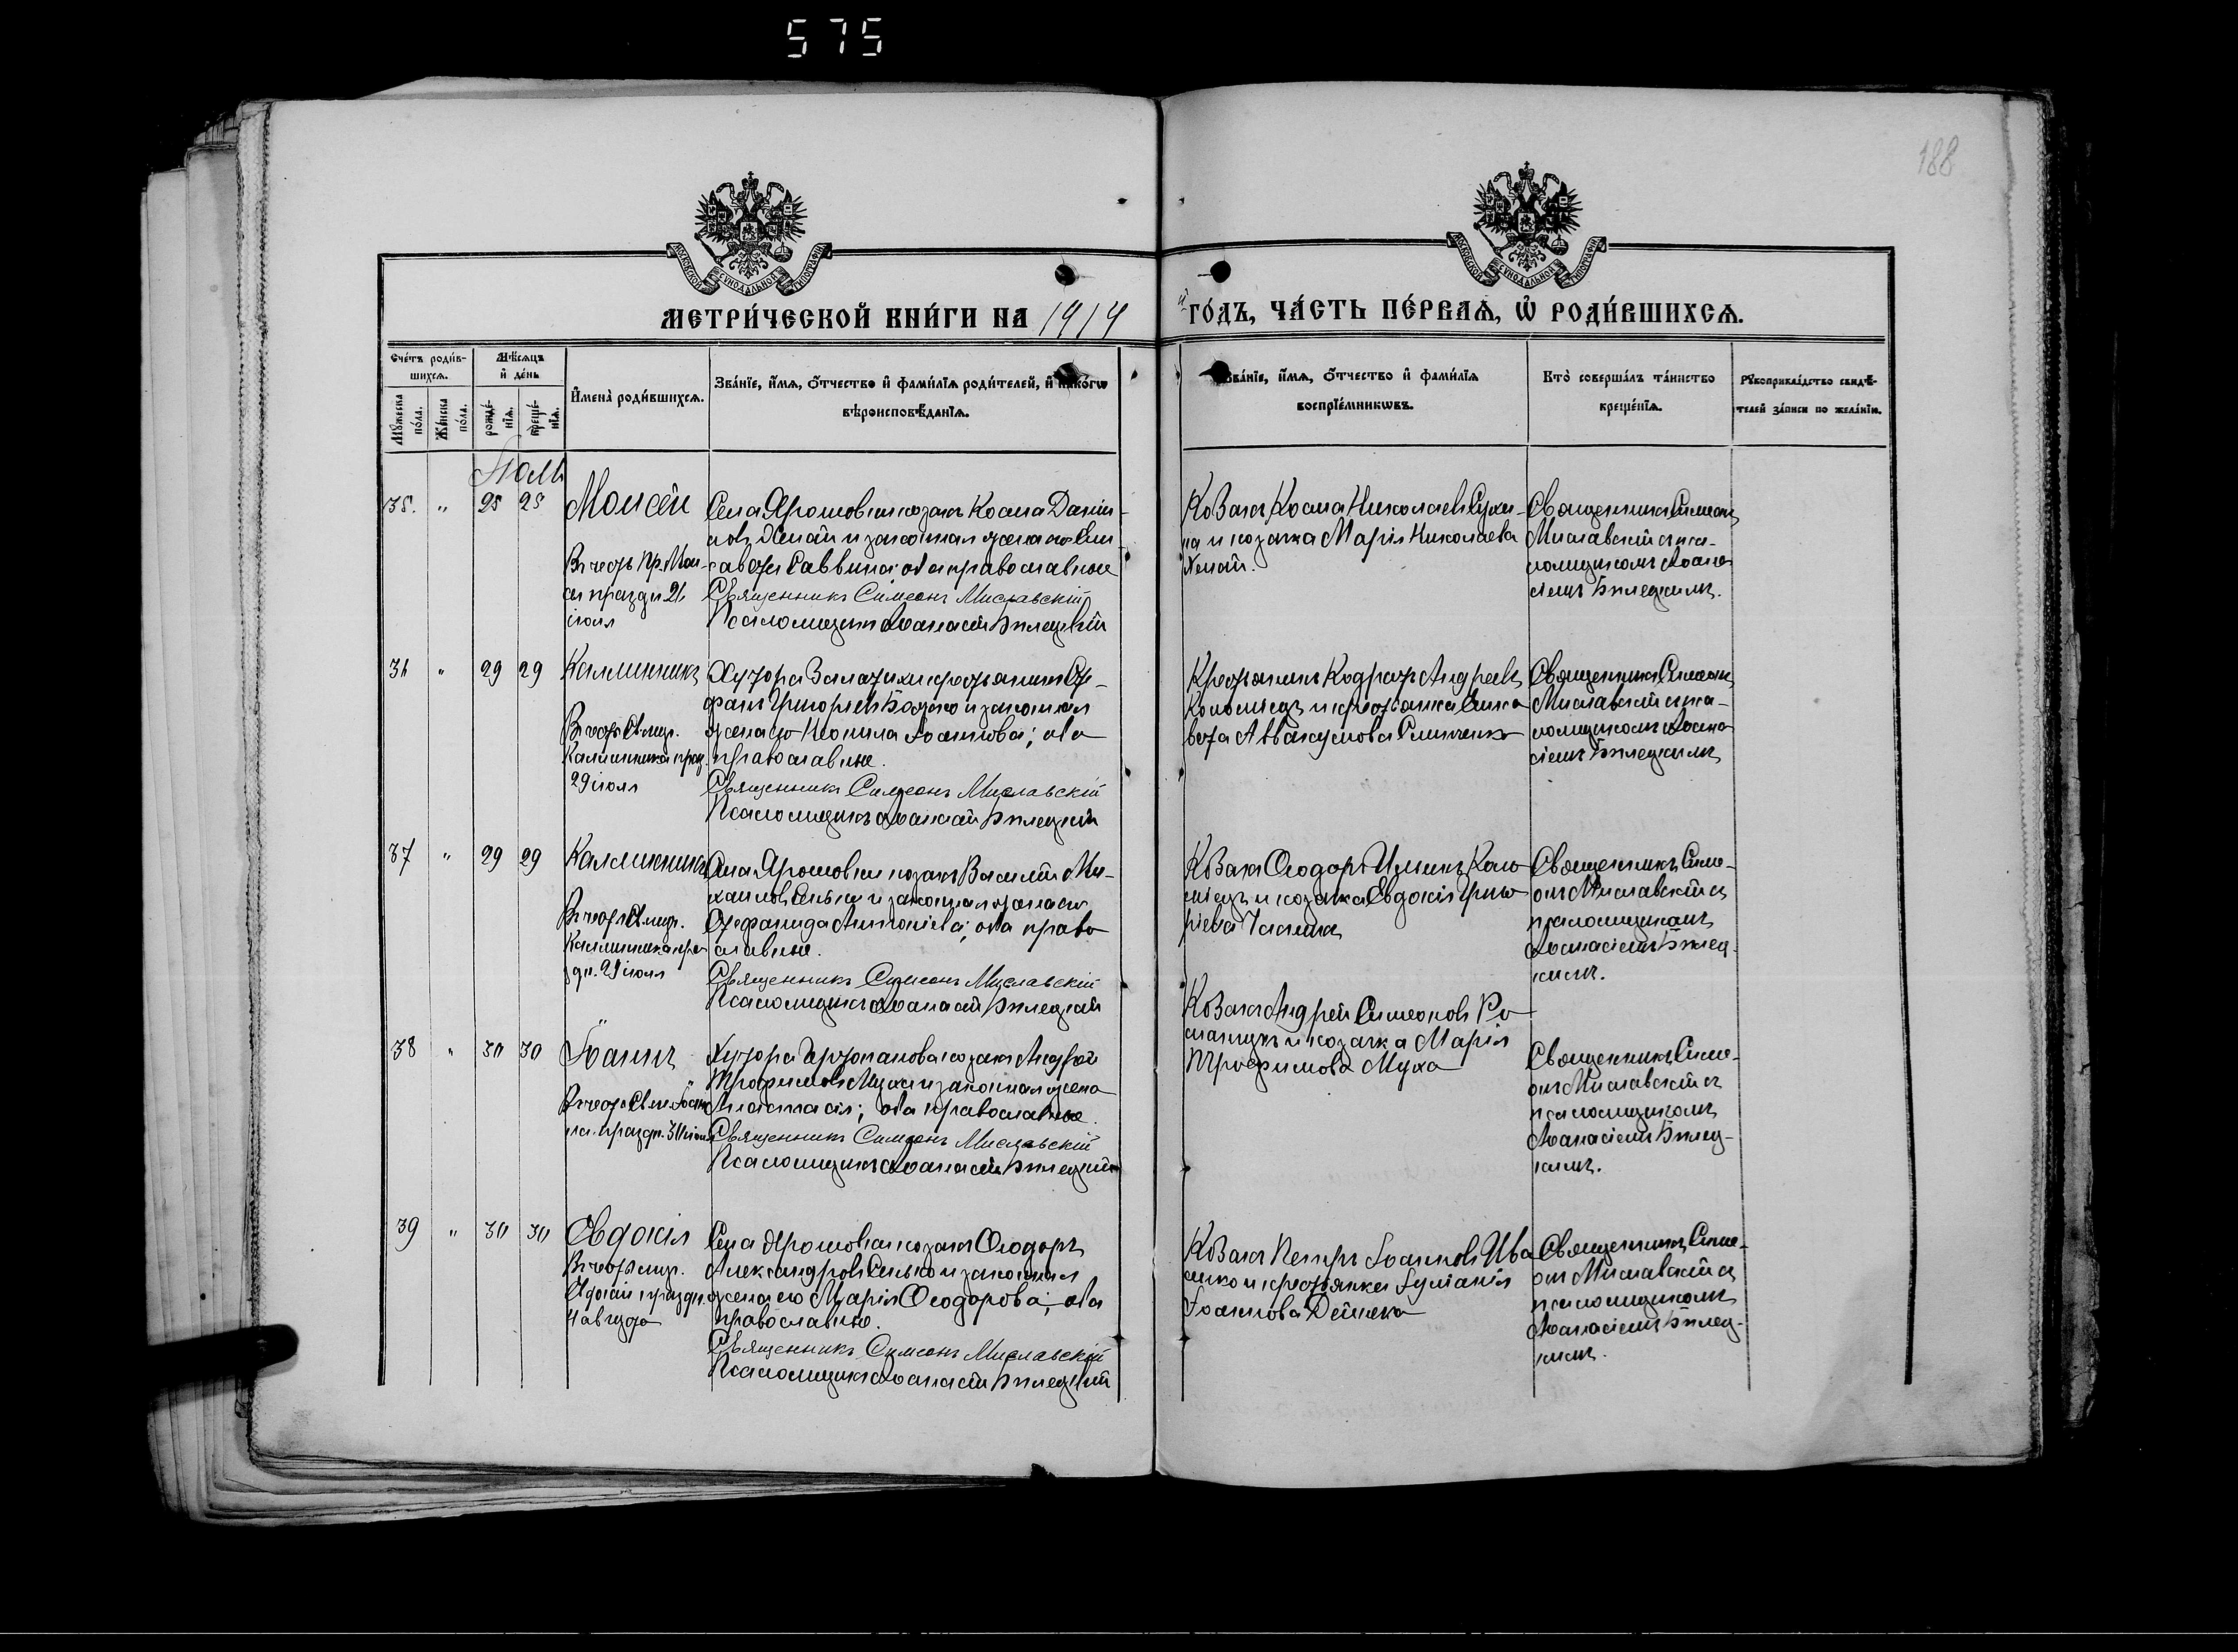 575
188
МОСКОВСКОЙ СѴНОДАЛЬНОЙ ТИПОГРАФІИ
МОСКОВСКОЙ СѴНОДАЛЬНОЙ ТИПОГРАФІИ
МЕТРИ́ЧЕСКОЙ КНИ́ГИ НА 1914
й ГО́ДЪ, ЧА́СТЬ ПЕ́РВАѦ, Ѡ҆ РОДИ́ВШИХСѦ.
Сче́тъ роди́в-
шихсѧ.
Мꙋ́жеска по́ла.
Же́нска по́ла.
Мѣ́сѧцъ
и҆ де́нь
рожде́-
нїѧ.
креще́-
нїѧ.
И҆мена̀ роди́вшихсѧ.
Зва́нїе, и҆́мѧ, ѻ҆́тчество и҆ фами́лїѧ роди́телей, и҆ како́гѡ
вѣроисповѣ́данїѧ.
Зва́нїе, и҆́мѧ, ѻ҆́тчество и҆ фами́лїѧ
воспрїе́мникѡвъ.
Кто̀ соверша́лъ та́инство
креще́нїѧ.
Рꙋкоприкла́дство свидѣ́-
телей за́писи по жела́нїю.
Іюль
35. " 25 25 Моисей
Села Ярошовки козакъ Косма Дании-
ловъ и законная жена его Ели-
савета Саввина; оба православные
Священникъ Симеонъ Миславскій
Псаломщикъ Аѳанасій Билецкій
Козакъ Косма Николаевъ
и козачка Марія Николаева
Священникъ Симеонъ
Миславскій съ пса-
ломщикомъ Аѳана-
сіемъ Билецкимъ.
36 " 29 29 Каллиникъ
Въ честь Св. муч.
Каллиника празд.
29 іюля
Хутора крестьянинъ Сте-
фанъ Григорьевъ и законная
жена его Неонила Іоаннова; оба
православные.
Священникъ Симеонъ Миславскій
Псаломщикъ Аѳанасій Билецкій
Крестьянинъ Андреевъ
Коломіецъ и крестьянка Елиса-
вета Аввакумова
Священникъ Симеонъ
Миславскій съ пса-
ломщикомъ Аѳана-
сіемъ Билецкимъ
37 " 29 29 Каллиникъ
Въ честь Св. муч.
Каллиника праз-
дн. 29 іюля
Села Ярошовки козакъ Василій Ми-
хаиловъ и законная жена его
Стефанида Антоніева; оба право-
славные.
Священникъ Симеонъ Миславскій
Псаломщикъ Аѳанасій Билецкій
Козакъ Ѳеодоръ Коло-
міецъ и козачка Евдокія Григо-
рьева
Священникъ Симе-
онъ Миславскій съ
псаломщикомъ
Аѳанасіемъ Билец-
кимъ.
38 " 30 30 Іоаннъ
Хутора козакъ Андрей
Трофимовъ Муха и законная жена
Анастасія; оба православные.
Священникъ Симеонъ Миславскій
Псаломщикъ Аѳанасій Билецкій
Козакъ Андрей Симеоновъ Ро-
и козачка Марія
Трофимова Муха
Священникъ Симе-
онъ Миславскій съ
псаломщикомъ
Аѳанасіемъ Билец-
кимъ.
39 " 30 30 Евдокія
Въ честь муч.
Евдокіи праздн.
4 августа
Села Ярошовки козакъ Ѳеодоръ
Александровъ и законная
жена его Марія Ѳеодорова; оба
православные.
Священникъ Симеонъ Миславскій
Псаломщикъ Аѳанасій Билецкій
Козакъ Петръ Іоанновъ Ива-
и крестьянка Іуліанія
Іоаннова Дейнека
Священникъ Симе-
онъ Миславскій съ
псаломщикомъ
Аѳанасіемъ Билец-
кимъ.